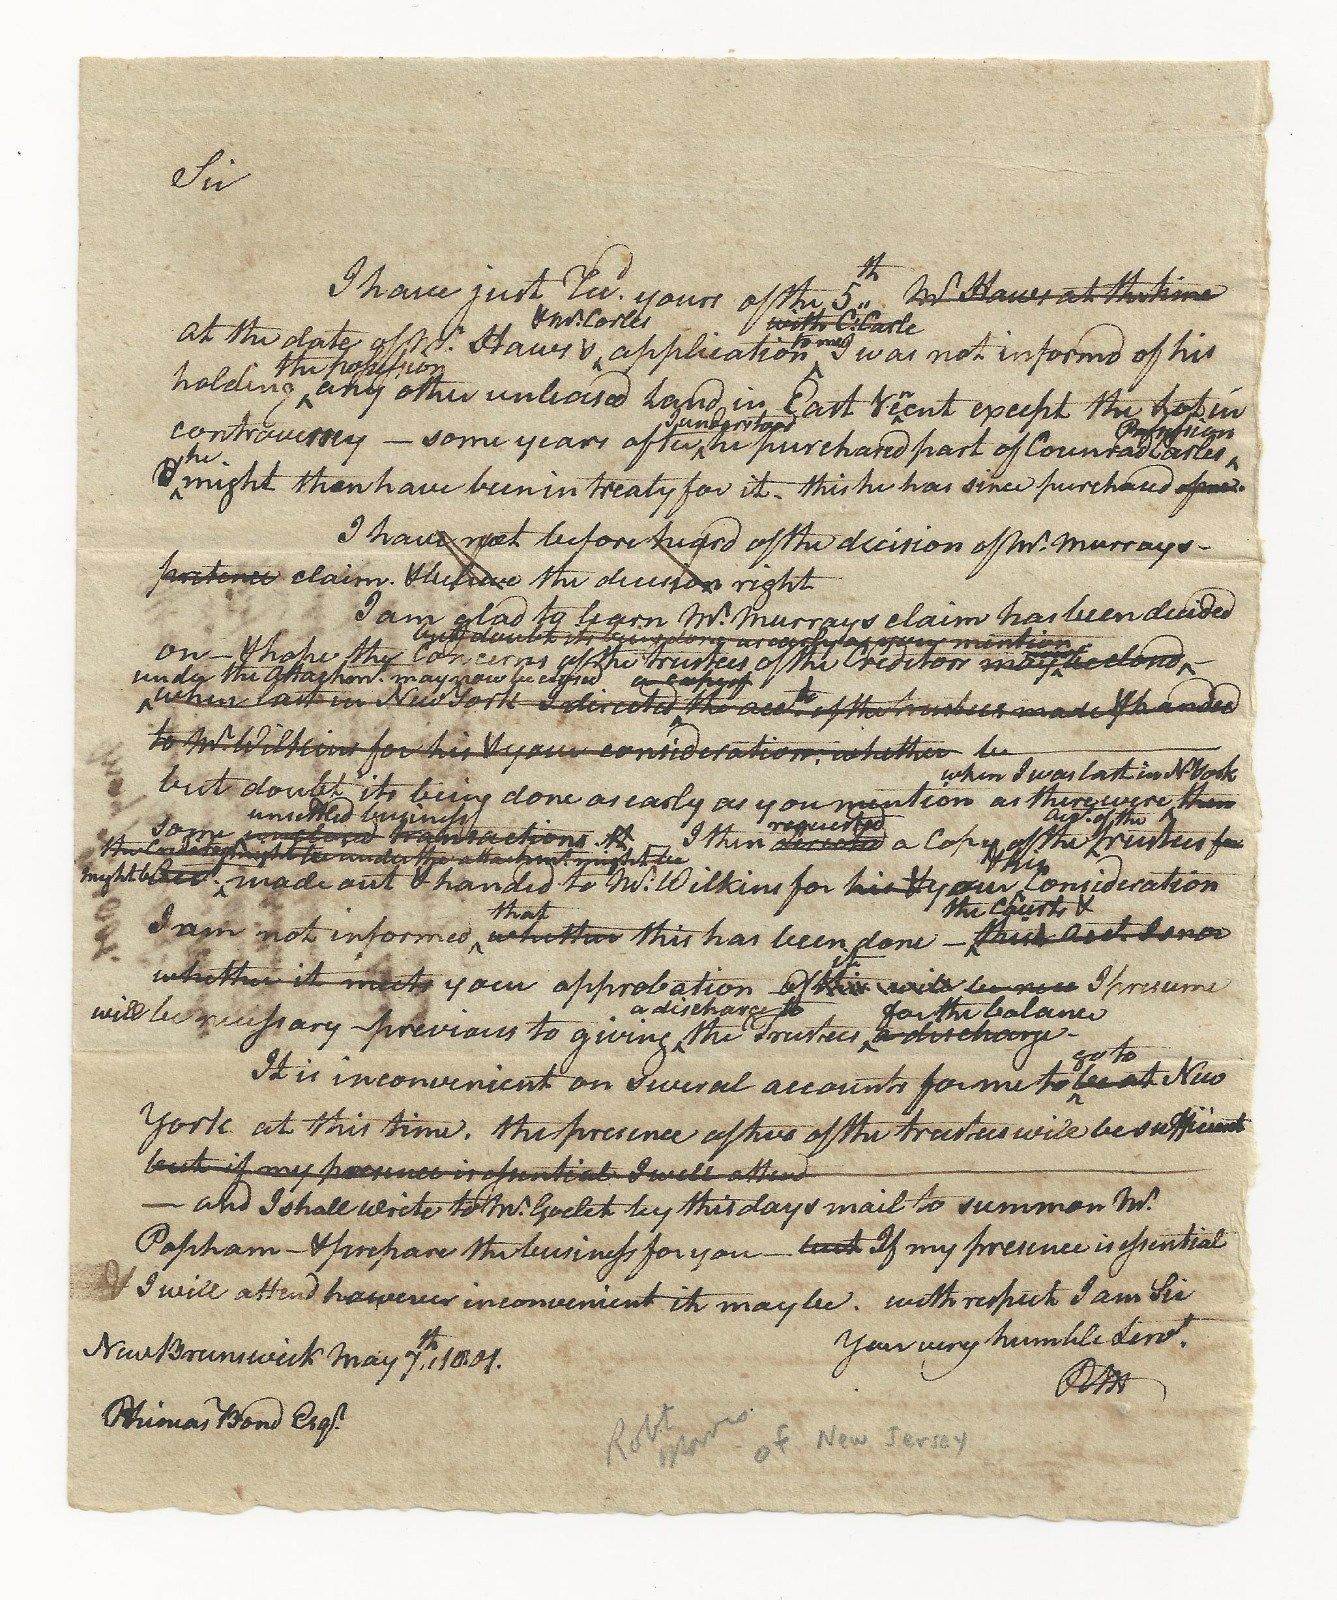 Sir
I have just Recd. yours of the 5th Mr Haws at the time
& Mr. Carles with C: Carle
at the date of Mr. Haws & application to me I was not informd of his
the possession
holding any other unleased Land in East & cent except the lot in
I understood Possession
controversey – some years after he purchased part of Counrad Carles
the
& might then have been in treaty for it – this he has since purchased
I have not before heard of the decision of Mr. Murrays –
pretence claim. & believe the decision right
I am glad to learn Mr. Murrays claim has been decided
but doubt its being done as early as you mention
on – & hope the Concerns of the trustees of the Creditors may be closd –
under the attachmt. may now be closed a copy of
when last in New York I directed the acct. of the trustees made & handed
to Mr. Wilkins for his & your consideration. whether be
when I was last in N York
but doubt its being done as early as you mention as there were then
unsettled business requested acct. of the
some unclosed transactions. I then directed a Copy of the trustees for
under the attachmt. might be
might be made out & handed to Mr. Wilkins for his & your Consideration
that the Courts &
I am not informed whether this has been done – their acct. I nor
if
whether it meets your approbation of this will be nece I presume
a discharge to for the balance
will be necessary – previous to giving the Trustees a discharge –
go to
It is inconvenient on several accounts for me to be at New
York at this time. the presence of two of the trustees will be sufficient
but if my presence is essential I will attend
– and I shall write to Mr. Goelet by this days mail to summon Mr.
Popham – & prepare the business for you – but If my presence is essential
I will attend however inconvenient it may be. with respect I am Sir
Your very humble Servt.
New Brunswick May 7th, 1801.
RM
Thomas Bond Esqr.
Robt Morris of New Jersey